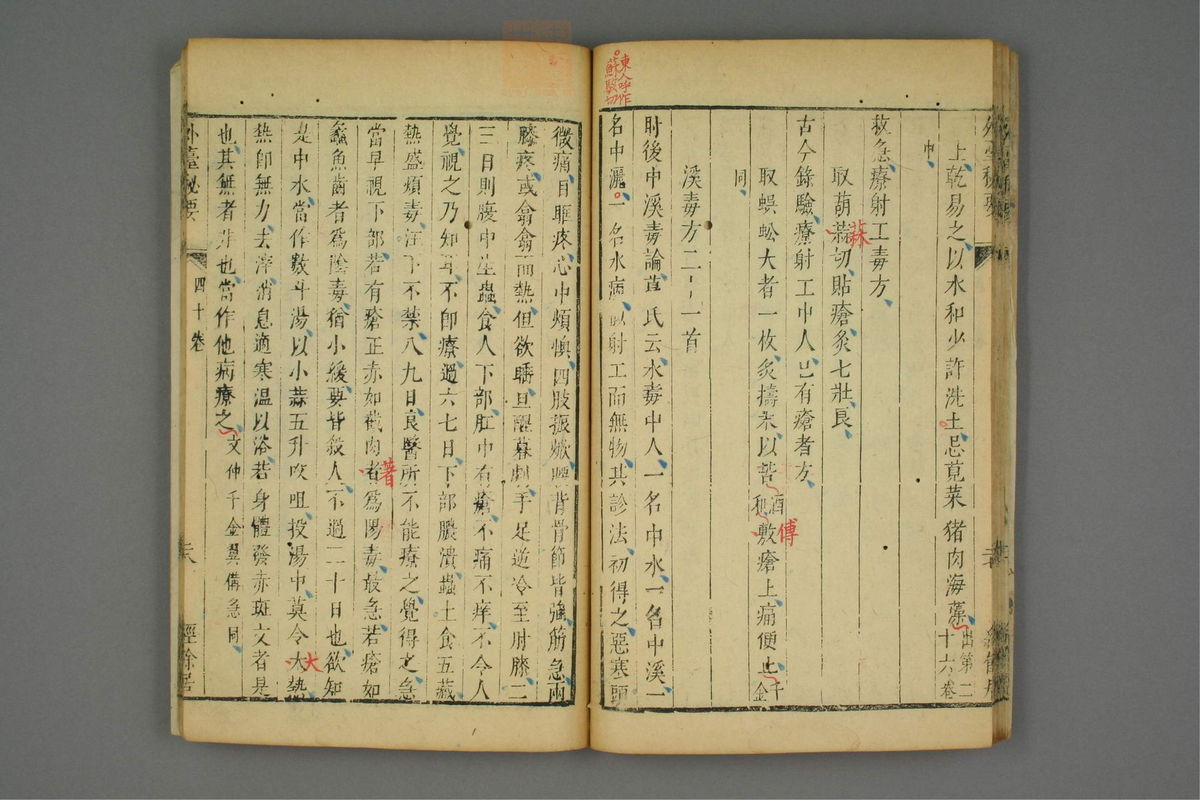 東人呼作
蘇駭切
上乾易之以水和少許洗土忌莧菜猪肉海藻出第二十六卷
中
救急療射工毒方
取葫蒜切貼瘡灸七壯良
蒜
古今錄驗療射工中人已有瘡者方
取蜈蚣大者一枚炙擣末以苦酒和敷瘡上痛便止千金
傅
同
溪毒方二十一首
肘後中溪毒論葛氏云水毒中人一名中水一名中溪一
名中灑一名水病似射工而無物其診法初得之惡寒頭
微痛目眶疼心中煩懊四肢振㷄腰背骨節皆強筋急兩
膝疼或翕翕而熱但欲睡旦醒暮劇手足逆冷至肘膝二
三日則腹中生蟲食人下部肛中有瘡不痛不痒不令人
覺視之乃知耳不卽療過六七日下部膿潰蟲上食五藏
熱盛煩毒注下不禁八九日良醫所不能療之覺得之急
當早視下部若有瘡正赤如截肉者爲陽毒最急若瘡如
著
鱻魚齒者爲陰毒猶小緩要皆殺人不過二十日也欲知
是中水當作數斗湯以小蒜五升㕮咀投湯中莫令大熱
大
熱卽無力去滓消息適寒温以浴若身體發赤斑文者是
也其無者非也當作他病療之文仲千金翼備急同
外臺秘要
四十卷
經餘居